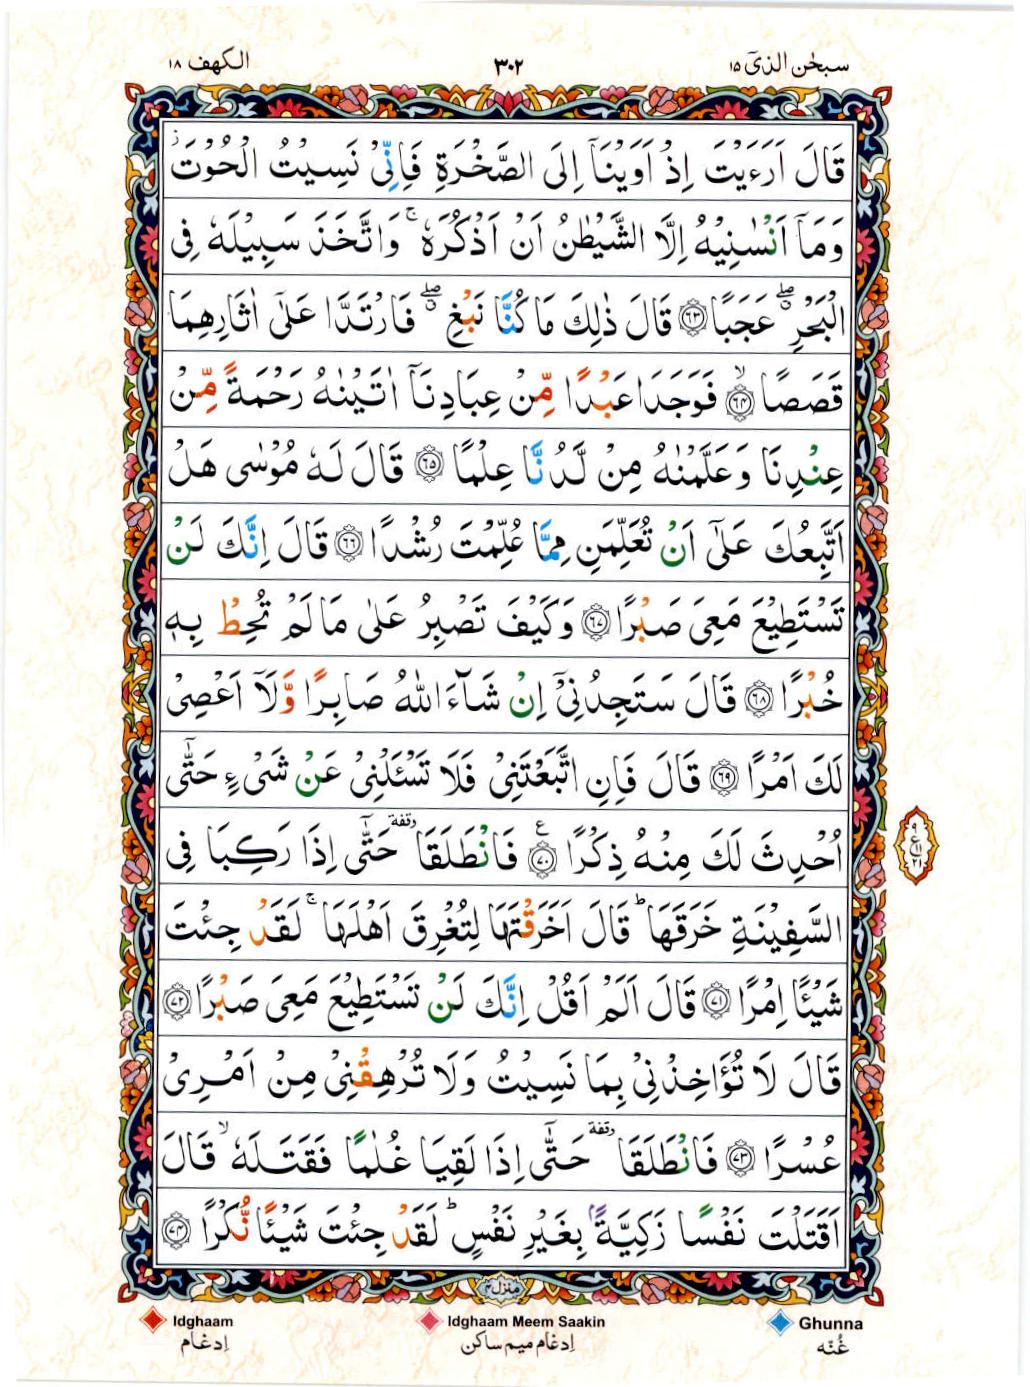 سبحٰن الذیٓ ۱۵
۳۰۲
الكهف ۱۸
قَالَ اَرَءَيْتَ اِذْ اَوَيْنَاۤ اِلَى الصَّخْرَةِ فَاِنِّىْ نَسِيْتُ الْحُوْتَ ز
وَمَاۤ اَنْسٰنِيْهُ اِلَّا الشَّيْطٰنُ اَنْ اَذْكُرَهٗ ۚ وَاتَّخَذَ سَبِيْلَهٗ فِى
الْبَحْرِ ۖ عَجَبًا ﴿۶۳﴾ قَالَ ذٰلِكَ مَا كُنَّا نَبْغِ ۖ فَارْتَدَّا عَلٰٓى اٰثَارِهِمَا
قَصَصًا ۙ﴿۶۴﴾ فَوَجَدَا عَبْدًا مِّنْ عِبَادِنَاۤ اٰتَيْنٰهُ رَحْمَةً مِّنْ
عِنْدِنَا وَعَلَّمْنٰهُ مِنْ لَّدُنَّا عِلْمًا ﴿۶۵﴾ قَالَ لَهٗ مُوْسٰى هَلْ
اَتَّبِعُكَ عَلٰٓى اَنْ تُعَلِّمَنِ مِمَّا عُلِّمْتَ رُشْدًا ﴿۶۶﴾ قَالَ اِنَّكَ لَنْ
تَسْتَطِيْعَ مَعِىَ صَبْرًا ﴿۶۷﴾ وَكَيْفَ تَصْبِرُ عَلٰى مَا لَمْ تُحِطْ بِهٖ
خُبْرًا ﴿۶۸﴾ قَالَ سَتَجِدُنِىْۤ اِنْ شَآءَ اللّٰهُ صَابِرًا وَّلَاۤ اَعْصِىْ
لَكَ اَمْرًا ﴿۶۹﴾ قَالَ فَاِنِ اتَّبَعْتَنِىْ فَلَا تَسْـَٔلْنِىْ عَنْ شَىْءٍ حَتّٰٓى
اُحْدِثَ لَكَ مِنْهُ ذِكْرًا ﴿۷۰﴾ع فَانْطَلَقَا وقفة حَتّٰٓى اِذَا رَكِبَا فِى
۹
ع ۱۱
۲۱
السَّفِيْنَةِ خَرَقَهَا ؕ قَالَ اَخَرَقْتَهَا لِتُغْرِقَ اَهْلَهَا ۚ لَقَدْ جِئْتَ
شَيْـًٔا اِمْرًا ﴿۷۱﴾ قَالَ اَلَمْ اَقُلْ اِنَّكَ لَنْ تَسْتَطِيْعَ مَعِىَ صَبْرًا ﴿۷۲﴾
قَالَ لَا تُؤَاخِذْنِىْ بِمَا نَسِيْتُ وَلَا تُرْهِقْنِىْ مِنْ اَمْرِىْ
عُسْرًا ﴿۷۳﴾ فَانْطَلَقَا وقفة حَتّٰٓى اِذَا لَقِيَا غُلٰمًا فَقَتَلَهٗ ۙ قَالَ
اَقَتَلْتَ نَفْسًا زَكِيَّةً ۢ بِغَيْرِ نَفْسٍ ؕ لَقَدْ جِئْتَ شَيْـًٔا نُّكْرًا ﴿۷۴﴾
منزل ۴
Idghaam
Idghaam Meem Saakin
Ghunna
إدغام
إدغام میم ساكن
غُنّه